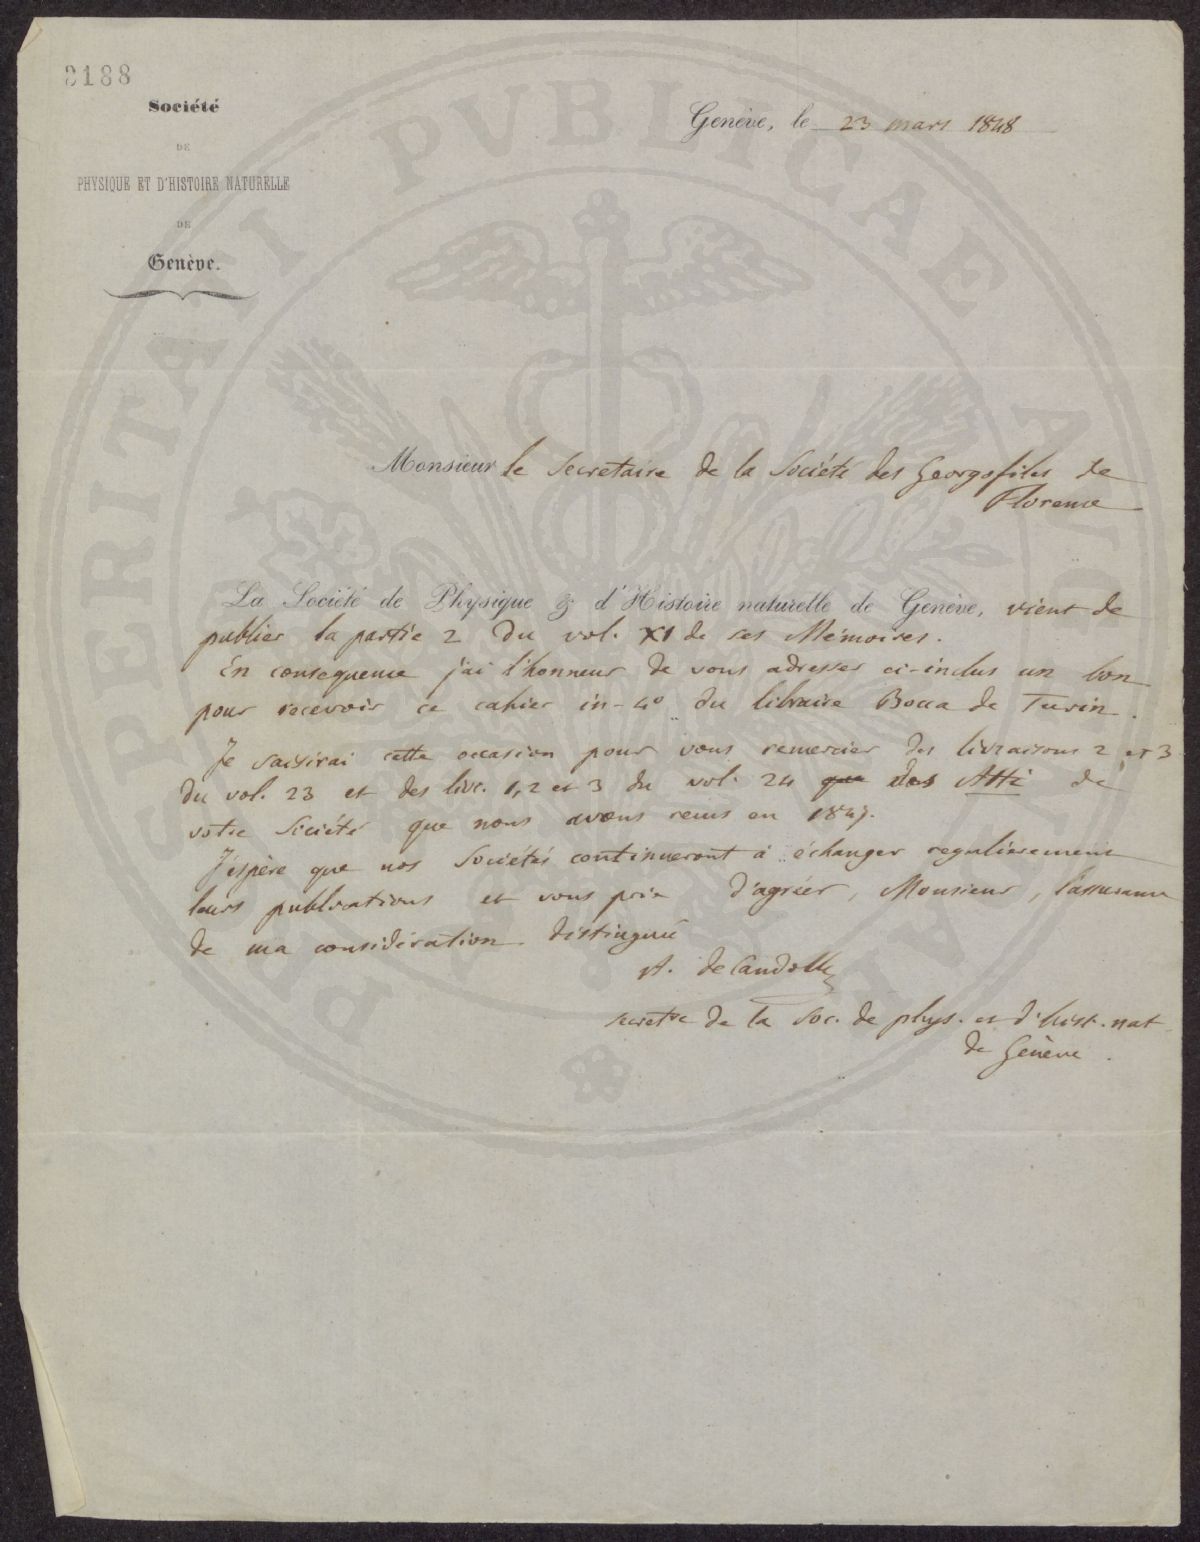 3188
Société
DE
PHYSIQUE ET D'HISTOIRE NATURELLE
DE
Genève.
Genève, le 23 mars 1848
Monsieur le Secretaire de la Société des Georgofiles de
Florence
La Société de Physique & d'Histoire naturelle de Genève, vient de
publier la partie 2 du vol. XI de ses Mémoires.
En consequence j'ai l'honneur de vous adresser ci-inclus un bon
pour recevoir ce cahier in-4° du libraire Bocca de Turin.
Je saisirai cette occasion pour vous remercier des livraisons 2 et 3
du vol. 23 et des livr. 1, 2 et 3 du vol. 24 que des Atti de
votre Société que nous avons reçus en 1847.
J'espère que nos Sociétés continueront à échanger regulierement
leurs publications et vous prie d'agréer, Monsieur, l'assurance
de ma considération distinguée
A. de Candolle
secretre de la Soc. de phys. et d'hist. nat
de Genève.
PROSPERITATI PVBLICAE AVGENDAE